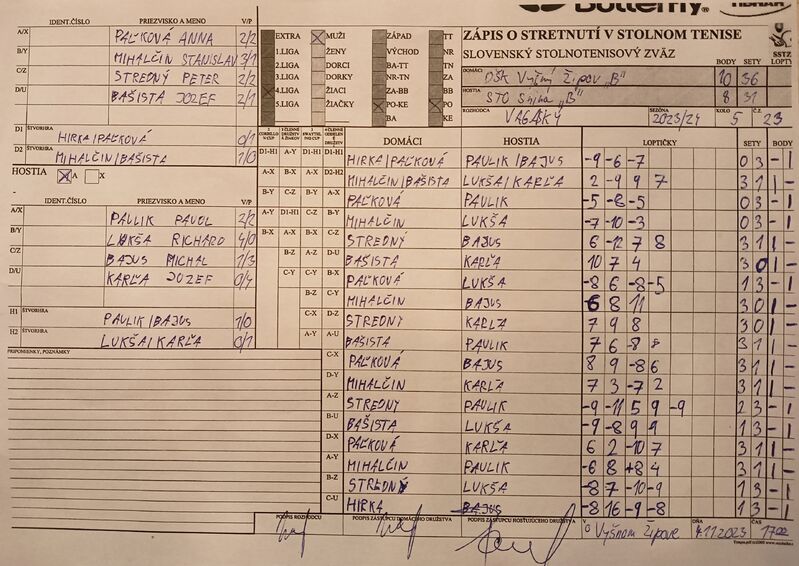 Butterfly
ZÁPIS O STRETNUTÍ V STOLNOM TENISE
SLOVENSKÝ STOLNOTENISOVÝ ZVÄZ
SSTZ
IDENT.ČÍSLO PRIEZVISKO A MENO V/P
A/X PAĽKOVÁ ANNA 2/2
B/Y MIHALČIN STANISLAV 3/1
C/Z STREDNÝ PETER 2/2
D/U BAŠISTA JOZEF 2/1
D1 ŠTVORHRA HIRKA/PAĽKOVÁ 0/1
D2 ŠTVORHRA MIHALČIN/BAŠISTA 1/0
HOSTIA A X
IDENT.ČÍSLO PRIEZVISKO A MENO V/P
A/X PAULIK PAVOL 2/2
B/Y LUKŠA RICHARD 4/0
C/Z BAJUS MICHAL 1/3
D/U KARĽA JOZEF 0/4
H1 ŠTVORHRA PAULIK/BAJUS 1/0
H2 ŠTVORHRA LUKŠA/KARĽA 0/1
PRIPOMIENKY, POZNÁMKY
EXTRA MUŽI ZÁPAD TT
1.LIGA ŽENY VÝCHOD NR
2.LIGA DORCI BA-TT TN
3.LIGA DORKY NR-TN ZA
4.LIGA ŽIACI ZA-BB BB
5.LIGA ŽIAČKY PO-KE PO
BA KE
BODY SETY LOPTY
DOMÁCI OŠK Vyšný Žipov "B" 10 36
HOSTIA STO Snina "B" 8 31
ROZHODCA VAGASKÝ SEZÓNA 2023/24 KOLO 5 Č.Z. 23
DOMÁCI HOSTIA LOPTIČKY SETY BODY
D1-H1 A-Y D1-H1 D1-H1 HIRKA/PAĽKOVÁ PAULIK/BAJUS -9 -6 -7 0 3 - 1
A-X B-X A-X D2-H2 MIHALČIN/BAŠISTA LUKŠA/KARĽA 2 -9 9 7 3 1 1 -
B-Y C-Z B-Y A-X PAĽKOVÁ PAULIK -5 -8 -5 0 3 - 1
A-Y D1-H1 C-Z B-Y MIHALČIN LUKŠA -7 -10 -3 0 3 - 1
B-X A-X B-X C-Z STREDNÝ BAJUS 6 -12 7 8 3 1 1 -
B-Z A-Z D-U BAŠISTA KARĽA 10 7 4 3 0 1 -
C-Y C-Y B-X PAĽKOVÁ LUKŠA -8 6 -8 -5 1 3 - 1
B-Z C-Y MIHALČIN BAJUS 6 8 11 3 0 1 -
C-X D-Z STREDNÝ KARĽA 7 9 8 3 0 1 -
A-Y A-U BAŠISTA PAULIK 7 6 -8 8 3 1 1 -
C-X PAĽKOVÁ BAJUS 8 9 -8 6 3 1 1 -
D-Y MIHALČIN KARĽA 7 3 -7 2 3 1 1 -
A-Z STREDNÝ PAULIK -9 -11 5 9 -9 2 3 - 1
B-U BAŠISTA LUKŠA -9 -8 9 9 1 3 - 1
D-X PAĽKOVÁ KARĽA 6 2 -10 7 3 1 1 -
A-Y MIHALČIN PAULIK -6 8 +8 4 3 1 1 -
B-Z STREDNÝ LUKŠA -8 7 -10 -9 1 3 - 1
C-U HIRKA BAJUS -8 16 -9 -8 1 3 - 1
PODPIS ROZHODCU PODPIS ZÁSTUPCU DOMÁCEHO DRUŽSTVA PODPIS ZÁSTUPCU HOSŤUJÚCEHO DRUŽSTVA V Vyšnom Žipove DŇA 4.11.2023 ČAS 17:00